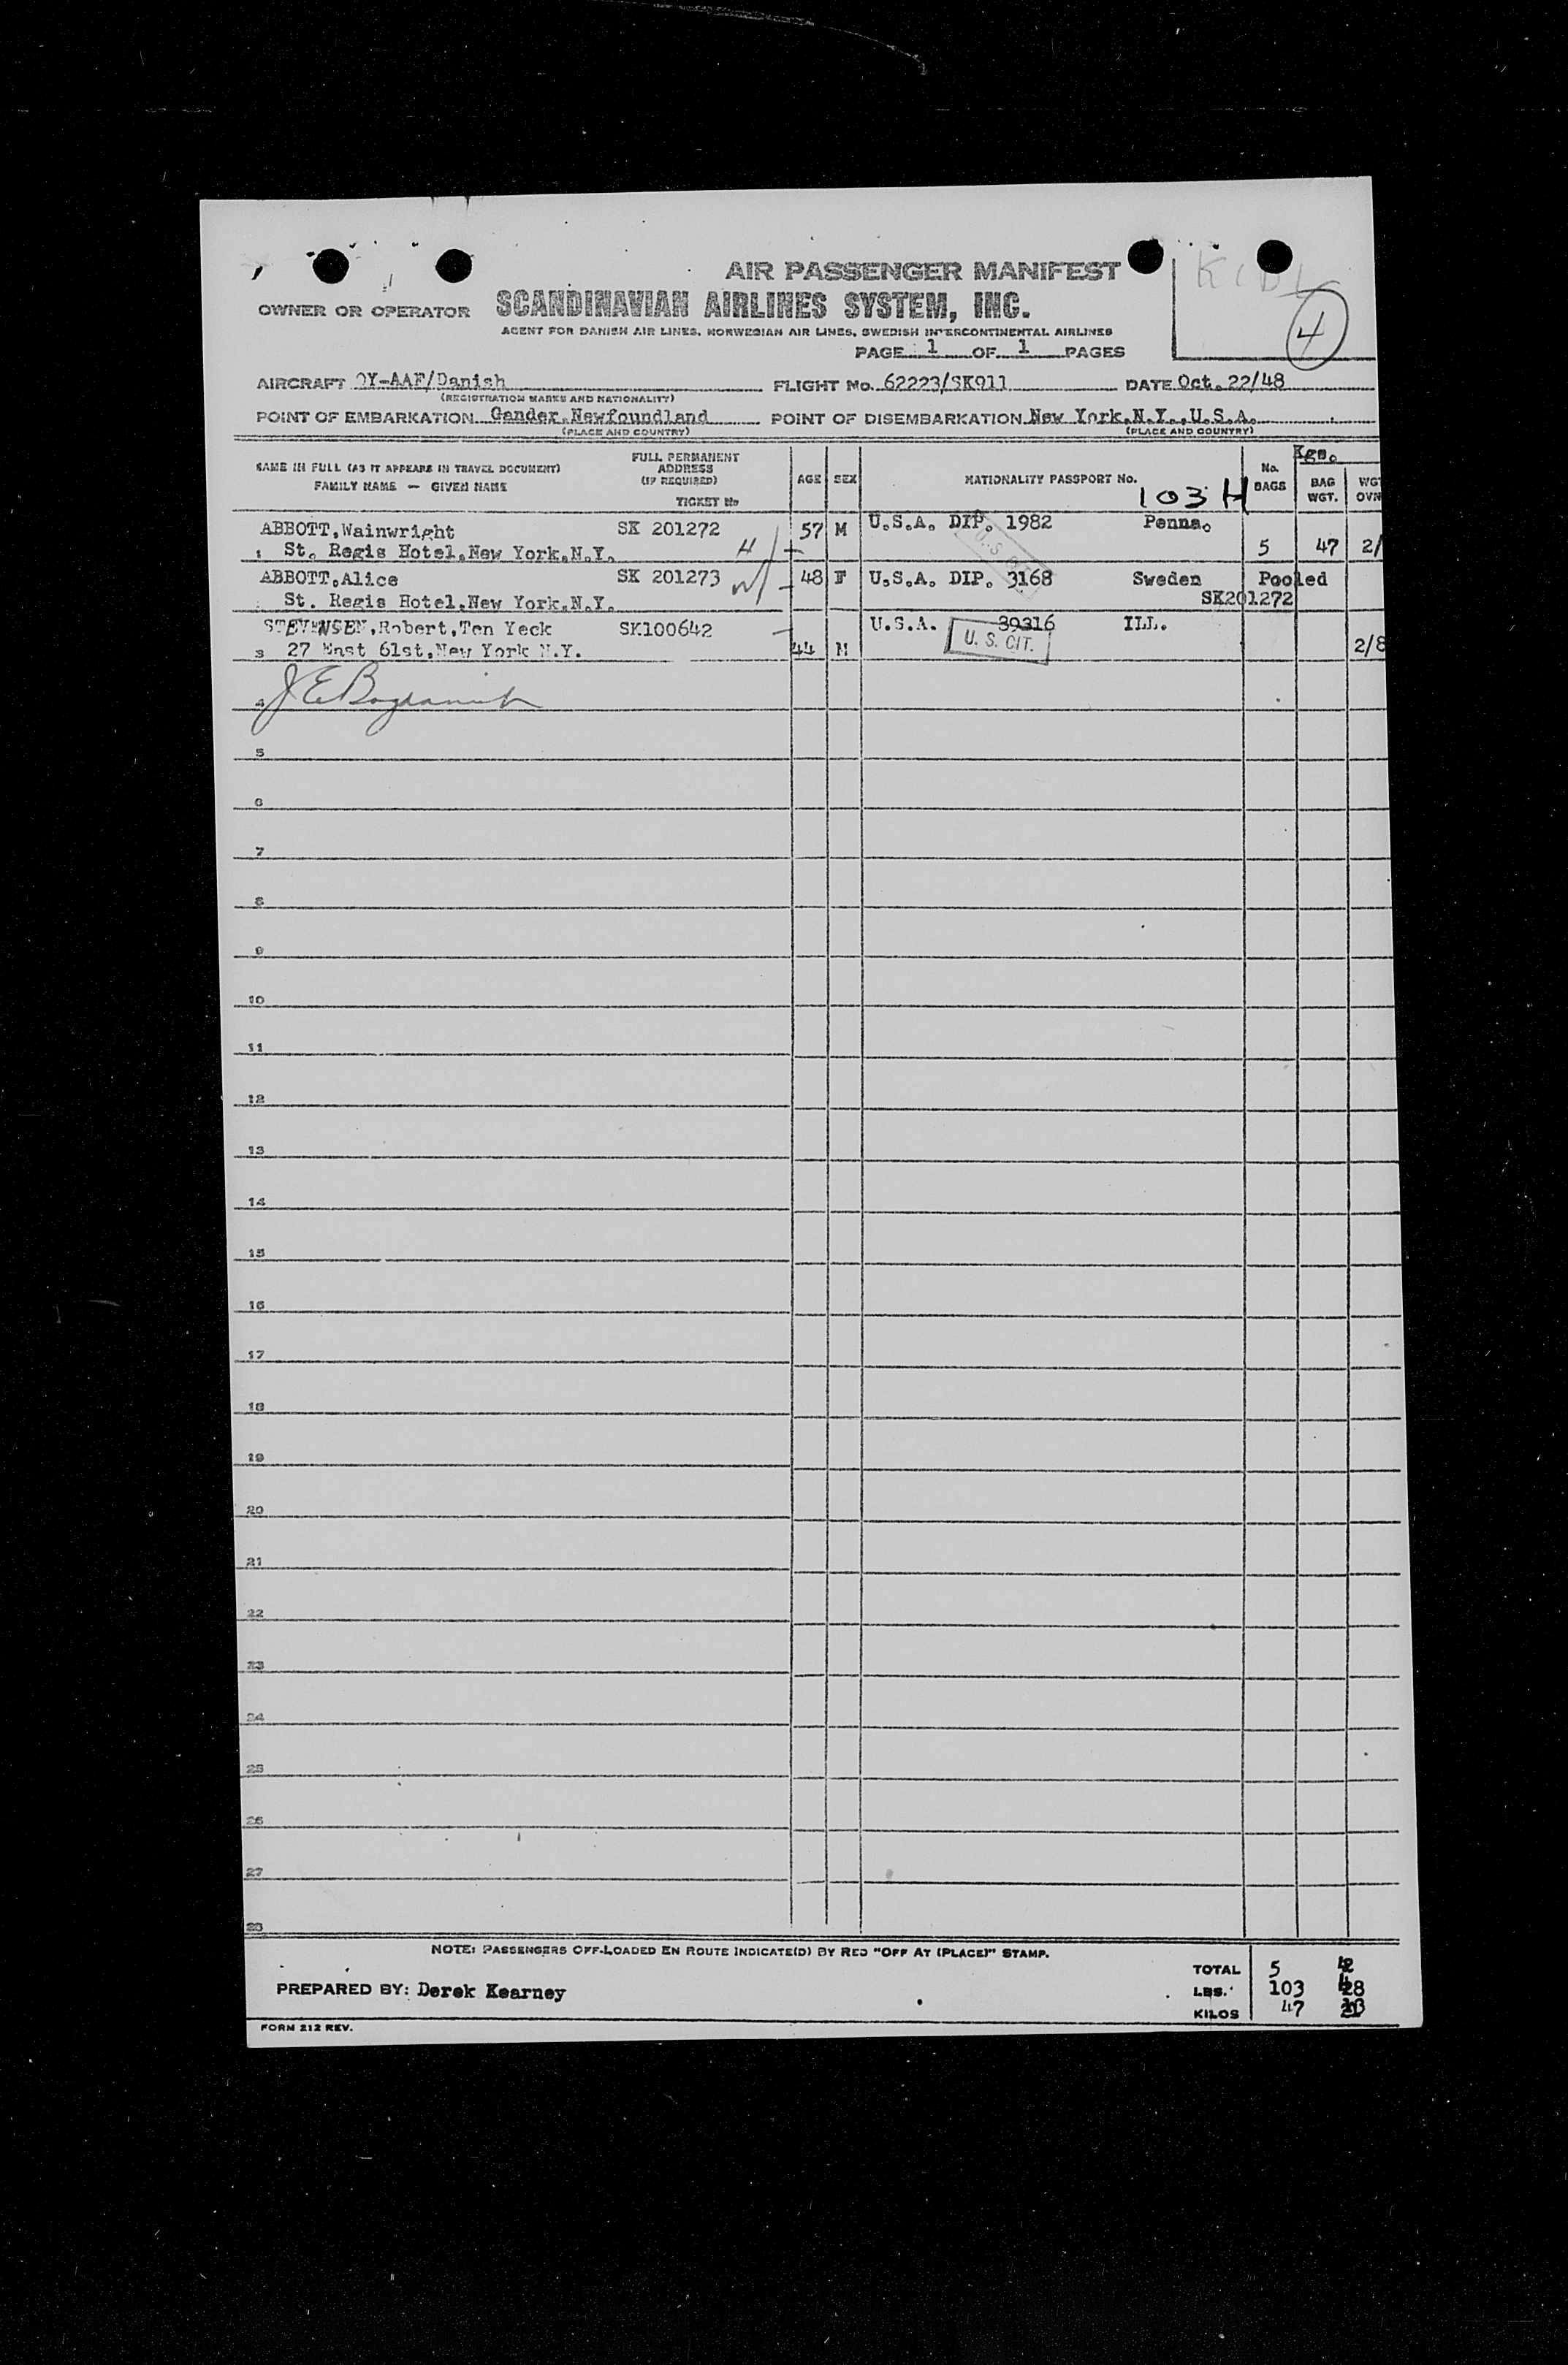 AIR PASSENGER MANIFEST
OWNER OR OPERATOR SCANDINAVIAN AIRLINES SYSTEM, INC.
AGENT FOR DANISH AIR LINES, NORWEGIAN AIR LINES, SWEDISH INTERCONTINENTAL AIRLINES
4
PAGE 1 OF 1 PAGES
AIRCRAFT OY-AAF/Danish FLIGHT No. 62223/SK911 DATE Oct. 22/48
(REGISTRATION MARKS AND NATIONALITY)
POINT OF EMBARKATION Gander, Newfoundland POINT OF DISEMBARKATION New York, N.Y., U.S.A.
(PLACE AND COUNTRY) (PLACE AND COUNTRY)
NAME IN FULL (AS IT APPEARS IN TRAVEL DOCUMENT) FULL PERMANENT ADDRESS (IF REQUIRED) AGE SEX NATIONALITY PASSPORT No. No. BAGS Kgs.
FAMILY NAME — GIVEN NAME TICKET No 103 H BAG WGT. WGT OVN
ABBOTT, Wainwright SK 201272 57 M U.S.A. DIP. 1982 Penna.
1 St. Regis Hotel, New York, N.Y. 5 47 2/
ABBOTT, Alice SK 201273 48 F U.S.A. DIP. 3168 Sweden Pooled
St. Regis Hotel, New York, N.Y. SK201272
STEVENSEN, Robert, Ten Yeck SK100642 U.S.A. 39316 ILL.
3 27 East 61st, New York N.Y. 44 M U. S. CIT. 2/8
4
5
6
7
8
9
10
11
12
13
14
15
16
17
18
19
20
21
22
23
24
25
26
27
28
NOTE: PASSENGERS OFF-LOADED EN ROUTE INDICATE(D) BY RED "OFF AT (PLACE)" STAMP.
TOTAL 5
PREPARED BY: Derek Kearney LBS. 103
KILOS 47
FORM 212 REV.